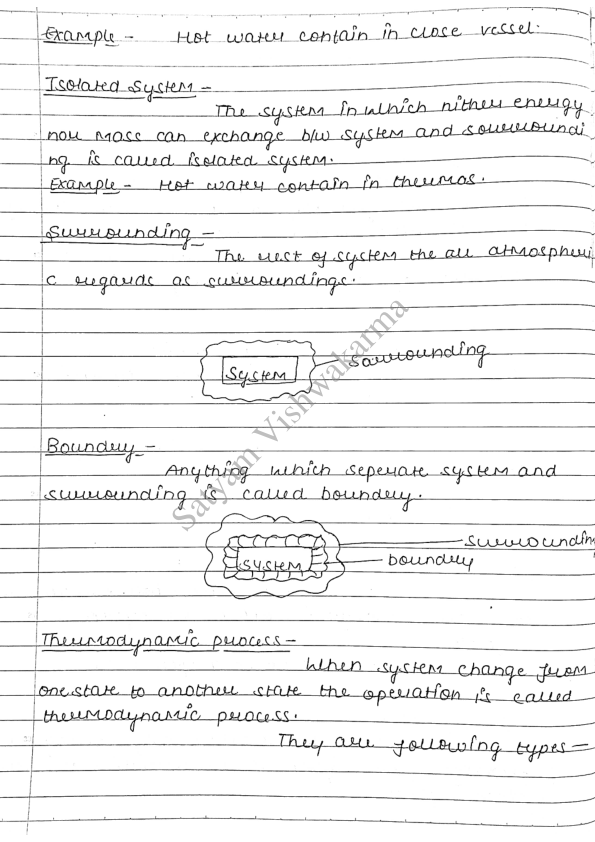 Example - Hot water contain in close vessel.
Isolated System -
The system in which nither energy
nor mass can exchange b/w system and sourroundi
ng is called isolated system.
Example - Hot water contain in thermos.
Surrounding -
The rest of system the all atmospheri
c regards as surroundings.
System
sarrounding
Boundery -
Anything which seperate system and
surrounding is called boundery.
surroundin
boundery
SYSTEM
Thermodynamic process -
When system change from
one state to another state the operation is called
thermodynamic process.
They are following types -
Satyam Vishwakarma